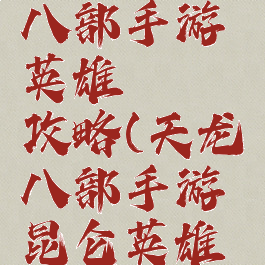 八部手游
英雄
攻略(天龙
八部手游
昆仑英雄